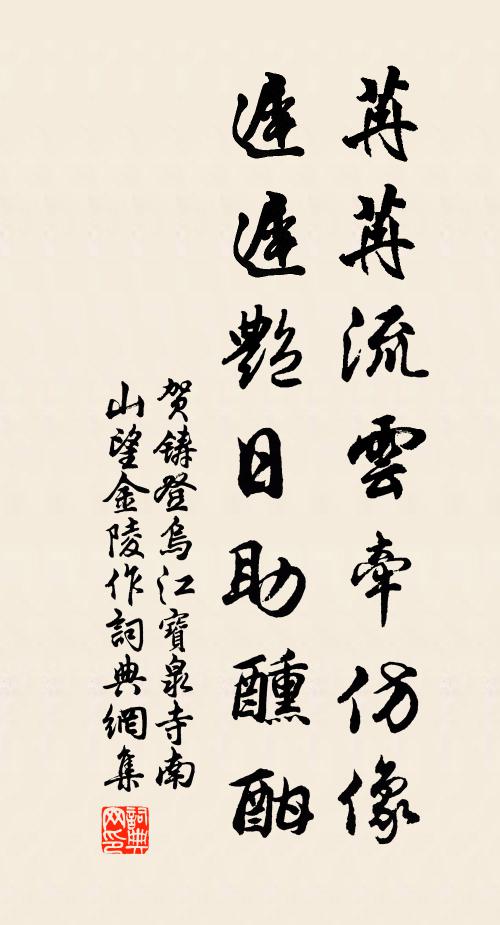 苒苒流雲牽仿像
遲遲艷日助醺酣
賀鑄登烏江寶泉寺南
山望金陵作詞典網集
詞典網印